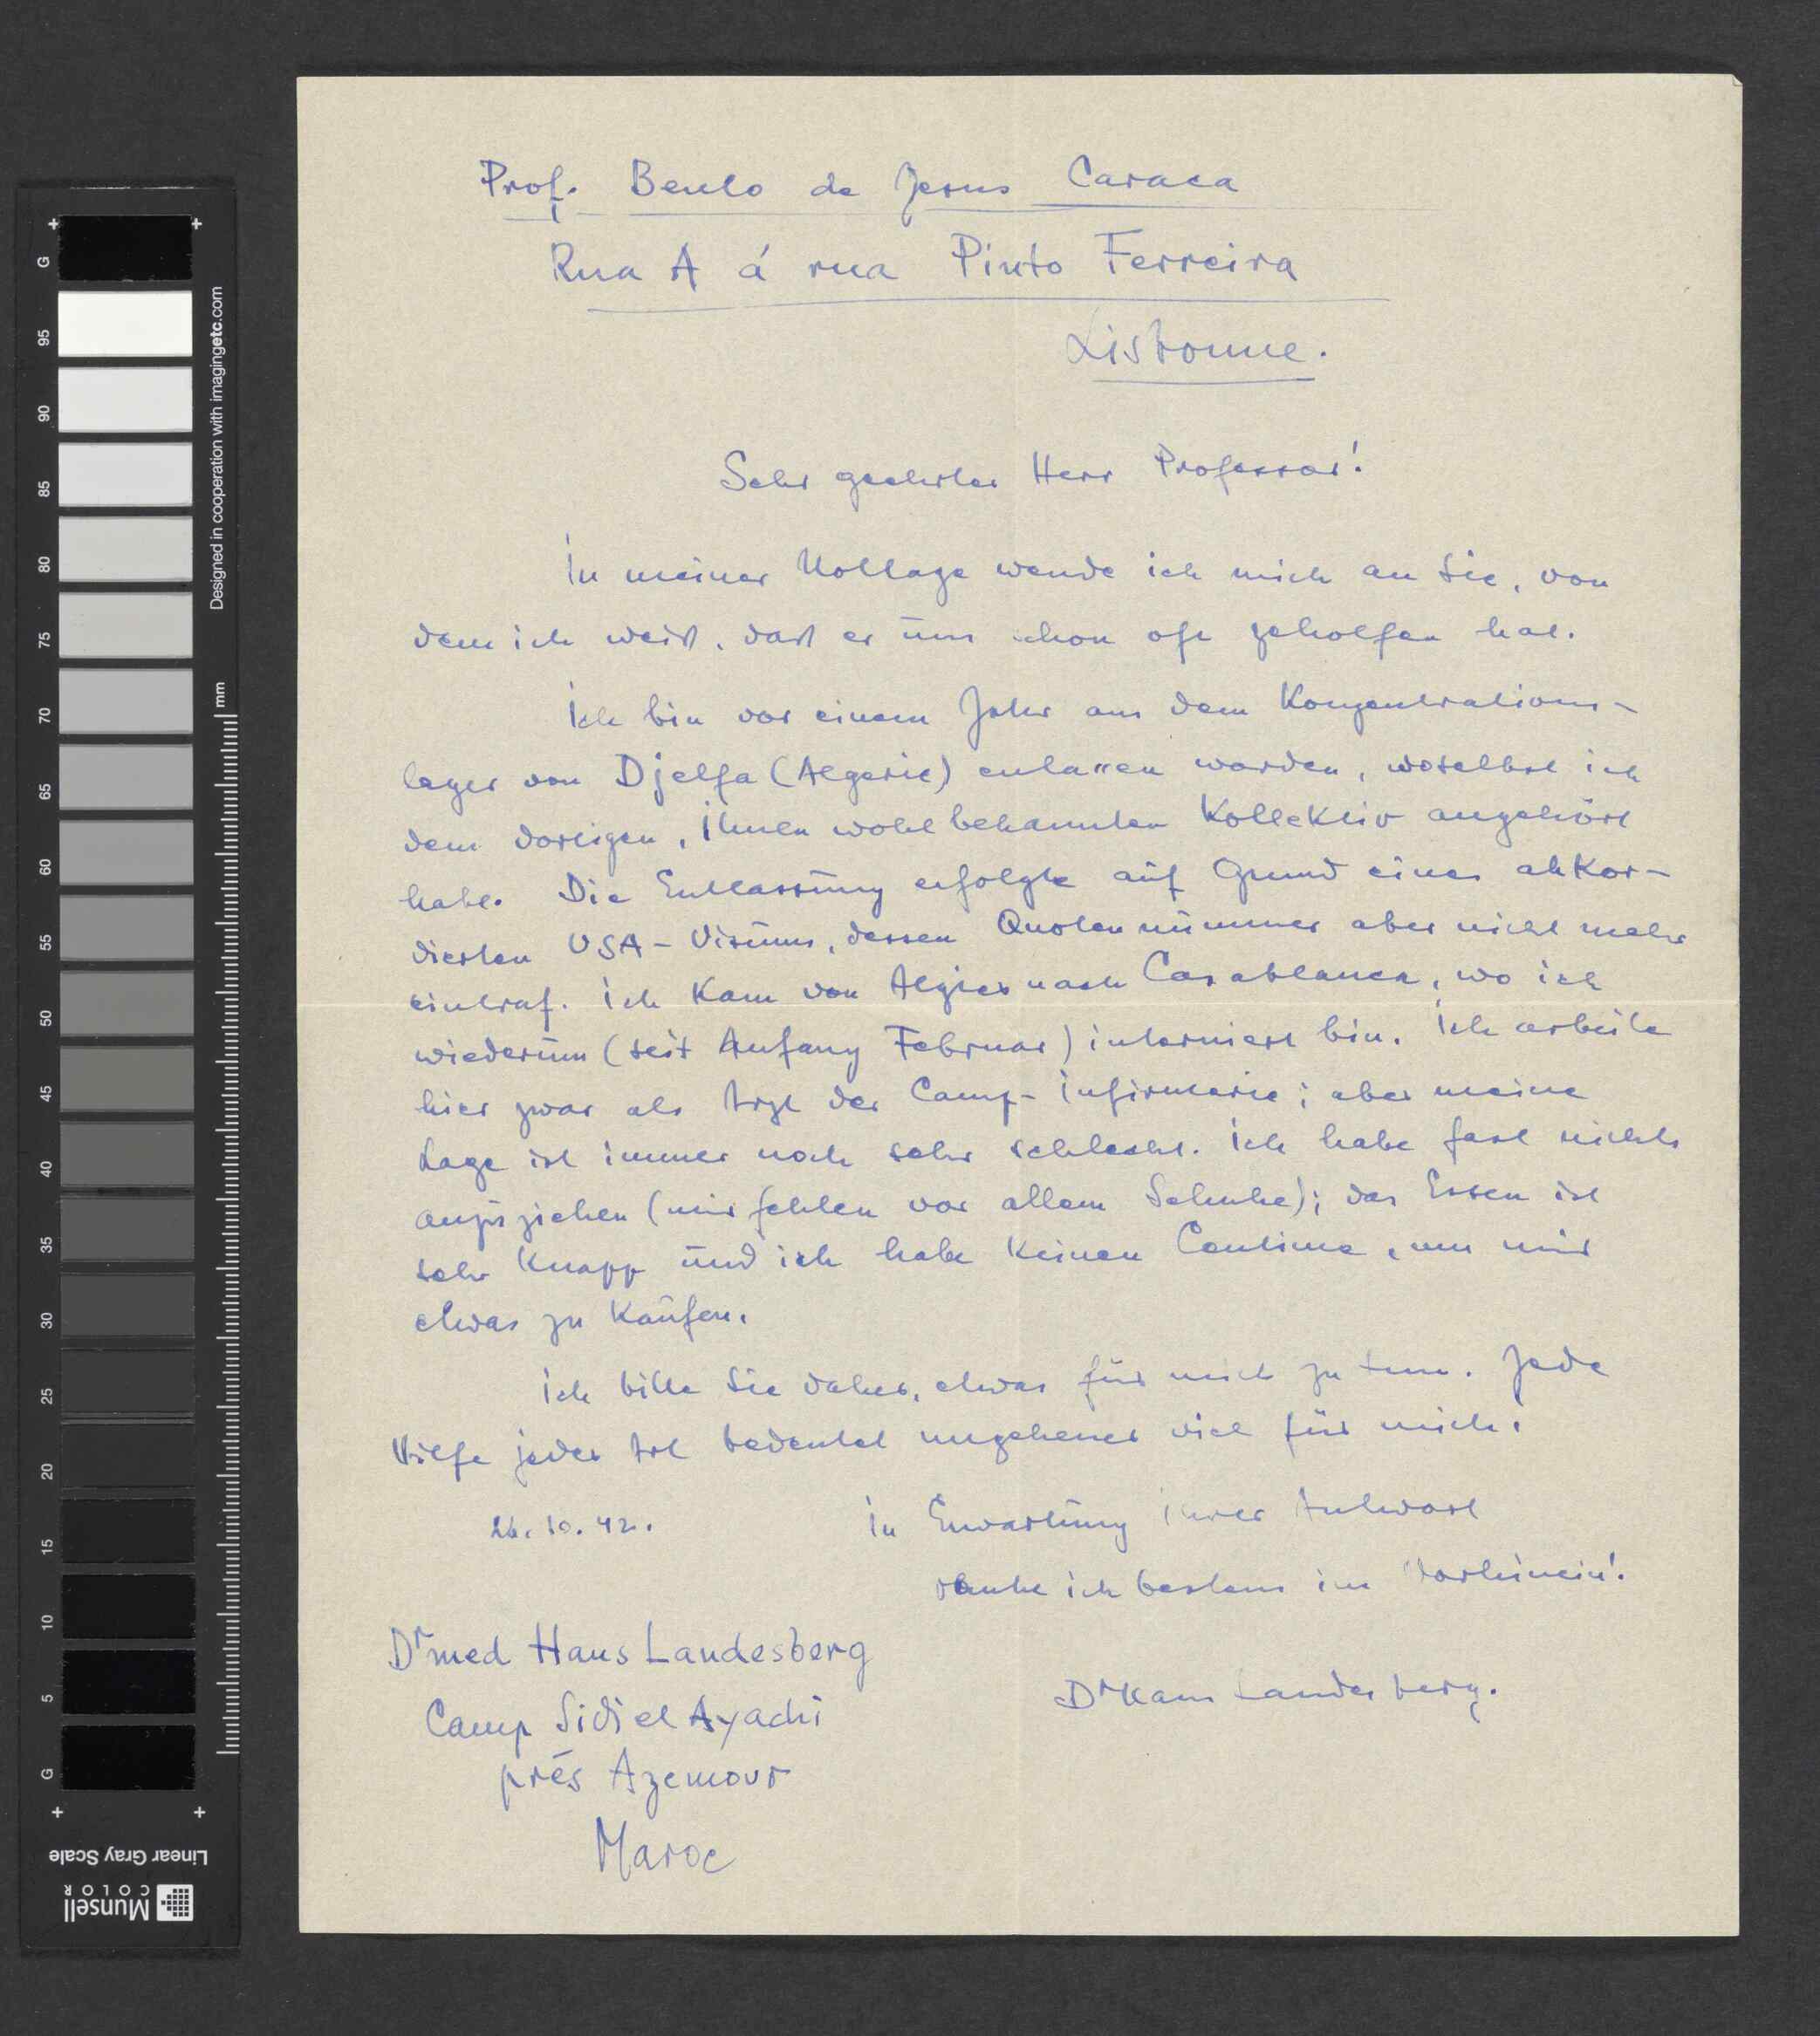 Prof. Bento de Jesus Caraca
Rua A á rua Pinto Ferreira
Lisbonne.
Sehr geehrter Herr Professor!
In meiner Notlage wende ich mich an Sie, von
dem ich weiß, daß er uns schon oft geholfen hat.
Ich bin vor einem Jahr aus dem Konzentrations-
lager von Djelfa (Algerie) entlassen worden, woselbst ich
dem dortigen, Ihnen wohl bekannten Kollektiv angehört
habe. Die Entlassung erfolgte auf Grund eines akkor-
dierten USA-Visums, dessen Quotennummer aber nicht mehr
eintraf. Ich kam von Algier nach Casablanca, wo ich
wiederum (seit Anfang Februar) interniert bin. Ich arbeite
hier zwar als Arzt der Camp-Infirmerie; aber meine
Lage ist immer noch sehr schlecht. Ich habe fast nichts
anzuziehen (mir fehlen vor allem Schuhe); das Essen ist
sehr knapp und ich habe keinen Centime, um mir
etwas zu kaufen.
Ich bitte Sie daher, etwas für mich zu tun. Jede
Hilfe jeder Art bedeutet ungeheuer viel für mich.
10.42. In Erwartung Ihrer Antwort
danke ich bestens im Vorhinein!
Dr med Hans Landesberg
Dr Hans Landesberg.
Camp Sidi el Ayachi
prés Azemour
Maroc
G
95
90
85
80
75
70
65
60
55
50
45
40
35
30
25
20
15
10
5
G
mm
Designed in cooperation with imagingetc.com
Linear Gray Scale
Munsell
COLOR